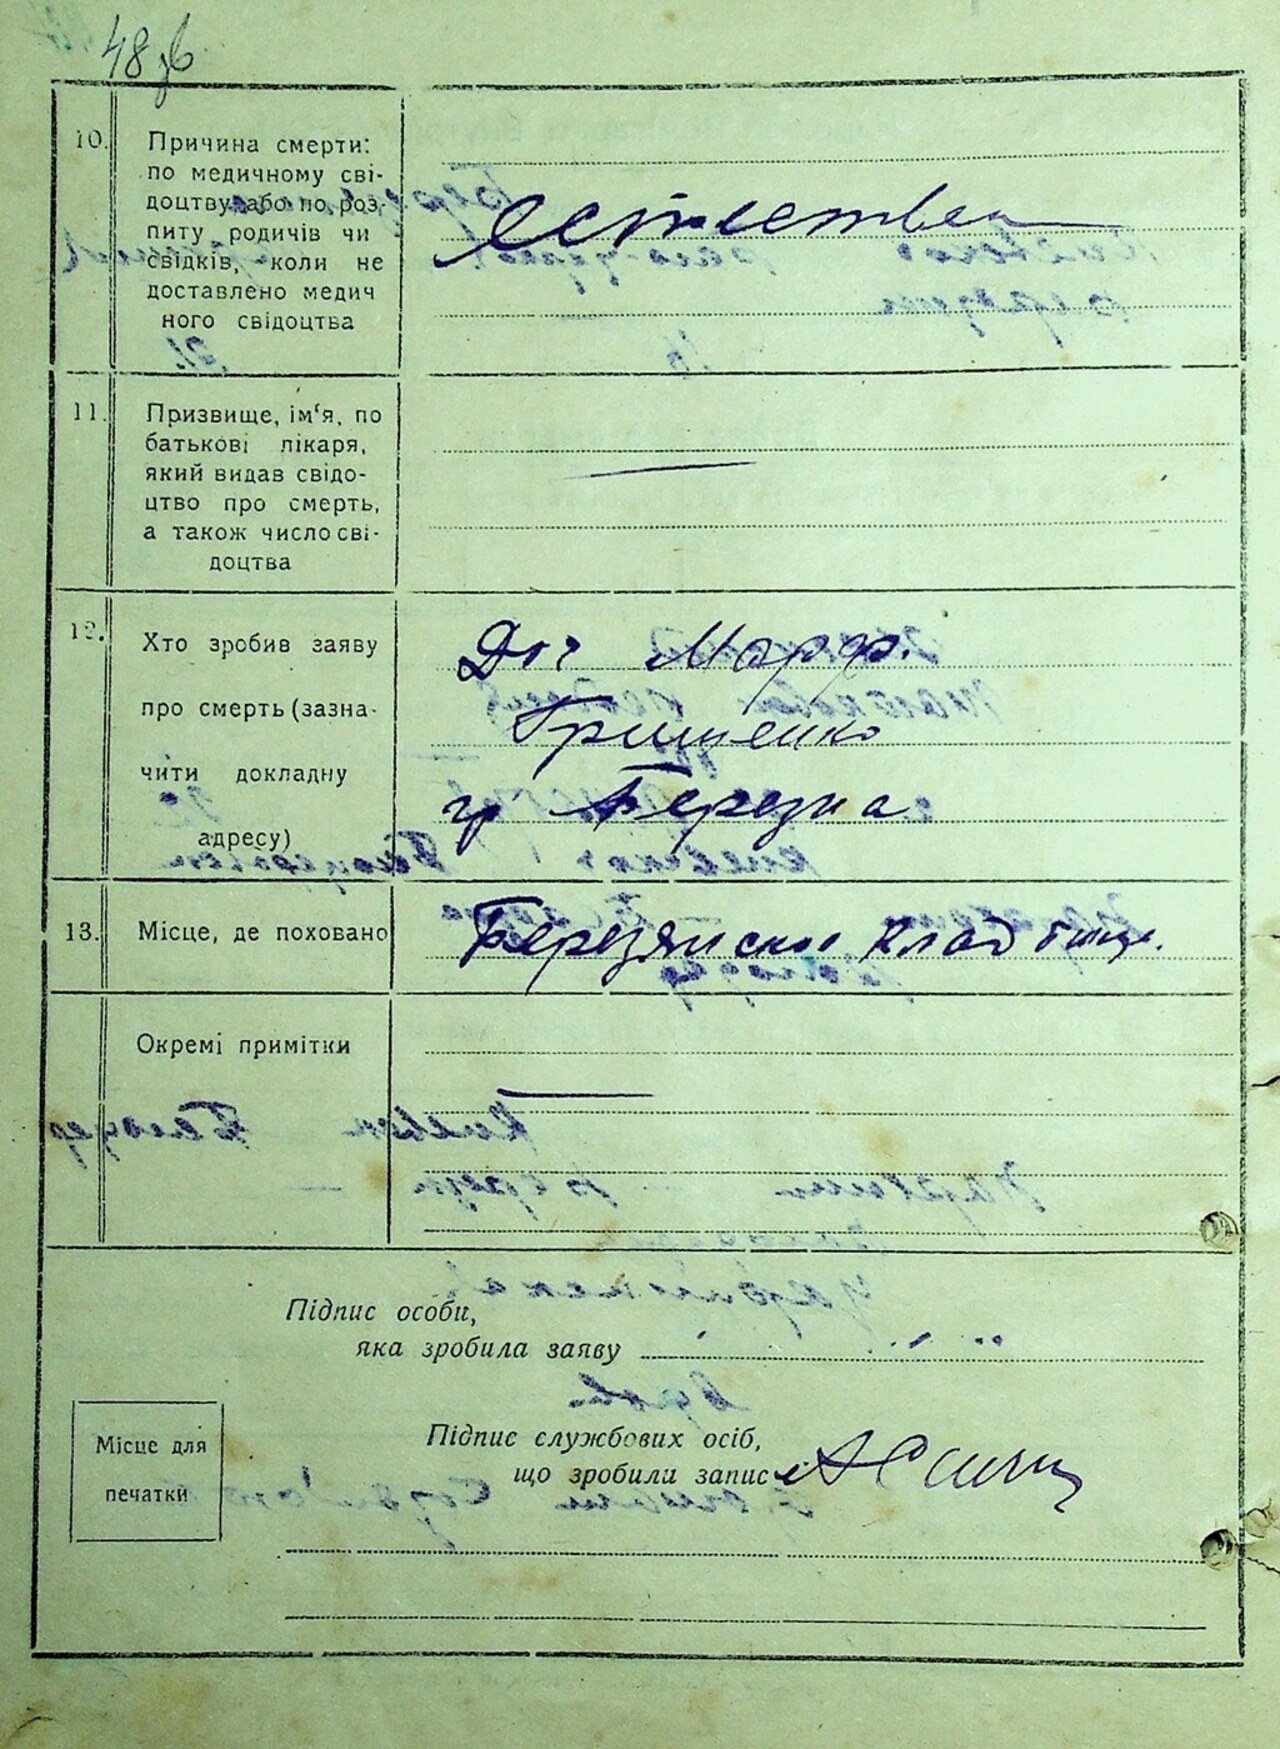 48 зв
10.
Причина смерти:
по медичному сві-
доцтву або по роз-
питу родичів чи
свідків, коли не
доставлено медич
ного свідоцтва
естествен
11.
Призвище, ім‘я, по
батькові лікаря,
який видав свідо-
цтво про смерть,
а також число сві-
доцтва
12.
Хто зробив заяву
про смерть (зазна-
чити докладну
адресу)
Доч Марф.
Грищенко
гр Березна
13.
Місце, де поховано
Березянское кладбище.
Окремі примітки
Підпис особи,
яка зробила заяву
Місце для
печатки
Підпис службових осіб,
що зробили запис